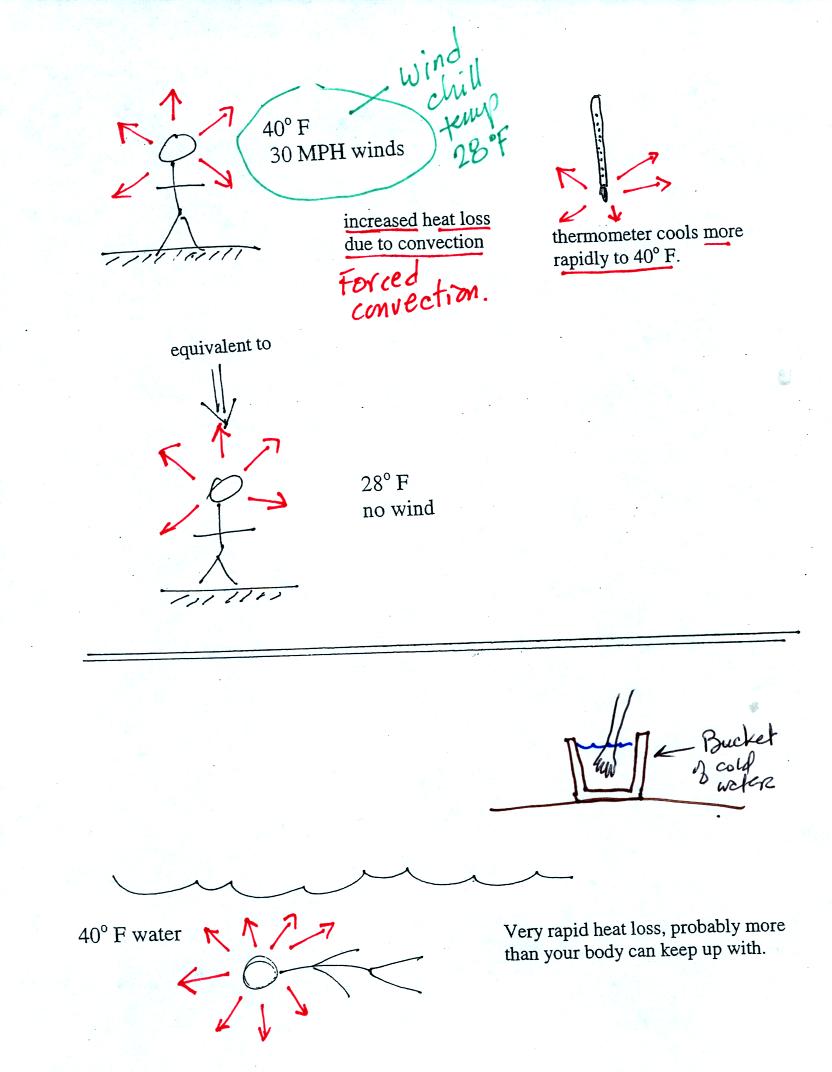 40° F
30 MPH winds
wind
chill
temp
28°F
increased heat loss
due to convection
Forced
convection.
thermometer cools more
rapidly to 40° F.
equivalent to
28° F
no wind
Bucket
of cold
water
40° F water
Very rapid heat loss, probably more
than your body can keep up with.